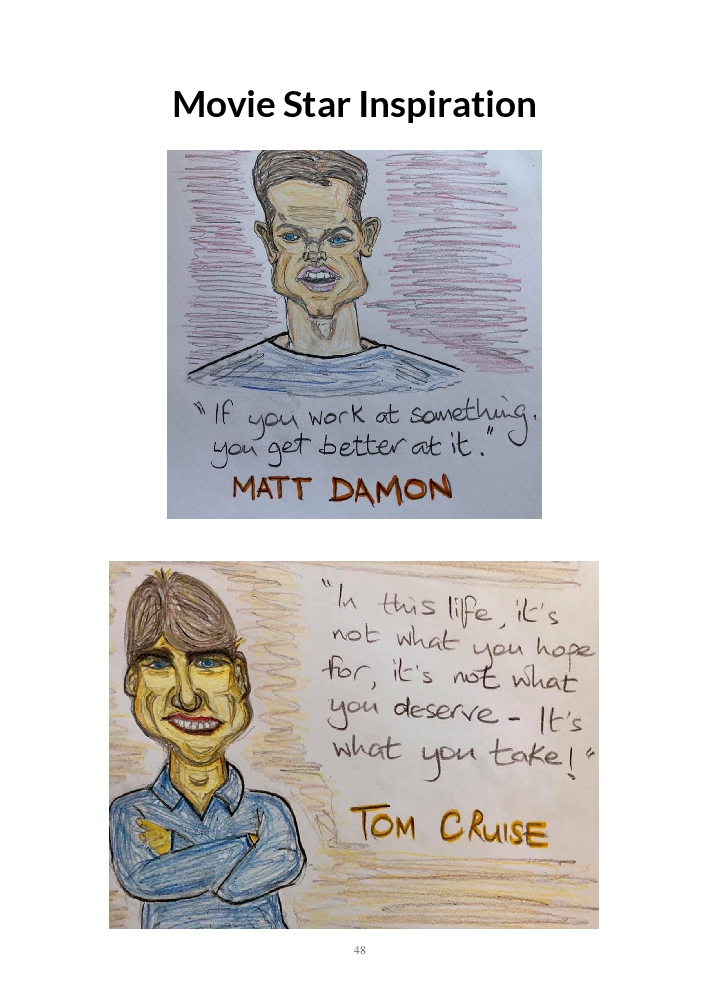 Movie Star Inspiration
"If you work at something.
you get better at it."
MATT DAMON
"In this life, it's
not what you hope
for, it's not what
you deserve - It's
what you take!"
TOM CRUISE
48